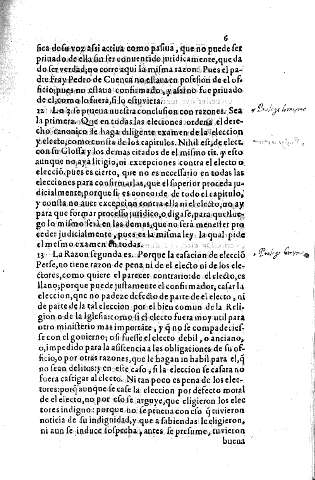 6
sica de su voz assi activa como passiua, que no puede ser
priuado de ella sin ser conuentido juridicamente, que da
do ser verdad, no corre aqui la misma razon: Pues el pa-
dre Fray Pedro de Cuenca no estaua en possesion de el of-
ficio, pues no estaua confirmado, y assi no fue priuado
de el, como lo fuera, si lo estuviera.
12 Lo 2. se prueua nuestra conclusion con razones. Sea
la primera. Que en todas las elecciones ordena el dere-
cho canonico se haga diligente examen de la eleccion
y electo, como consta de los capitulos. Nihil est, de elect.
con su Glossa y los demas citados de el mismo tit. y esto
aunque no aya litigio, ni excepciones contra el electo o
elecciõ. pues es cierto, que no es necessario en todas las
elecciones para confirmarlas, que el superior proceda ju-
dicialmente, porque si es concorde de todo el capitulo,
y consta no auer excepcion contra ella ni el electo, no ay
para que formar processo juridico, o digase, para que lue-
go lo mismo será en las demas, que no será menester pro
ceder judicialmente, pues es la misma ley la qual pide
el mesmo examen en todas.
13 La Razon segunda es. Porque la casacion de elecciõ
Perse, no tiene razon de pena ni de el electo ni de los ele-
ctores, como quiere el parecer contrario: de el electo, es
llano; porque puede justamente el confirmador, casar la
eleccion, que no padece defecto de parte de el electo, ni
de parte de la tal eleccion por el bien comun de la Reli-
gion o de la Iglesia: como si el electo fuera muy vtil para
otro ministerio mas importãte, y q̃ no se compadecies-
se con el gouierno; o si fuesse el electo debil, o anciano,
o, impedido para la asistencia a las obligaciones de su of-
ficio, o por otras razones, que le hagan inhabil para el, q̃
no sean delitos: y en este caso, si la eleccion se casara no
fuera castigar al electo. Ni tan poco es pena de los ele-
ctores: porq̃ aunque se case la eleccion por defecto moral
de el electo, no por esso se arguye, que eligieron los elec
tores indigno: porque no se prueua con esso q̃ tuvieron
noticia de su indignidad, y que a sabiendas le eligieron,
ni aun se induce sospecha, antes se presume, tuvieron
buena